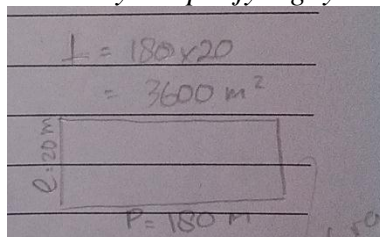 L = 180x20
= 3600 m²
l = 20 m
P = 180 m